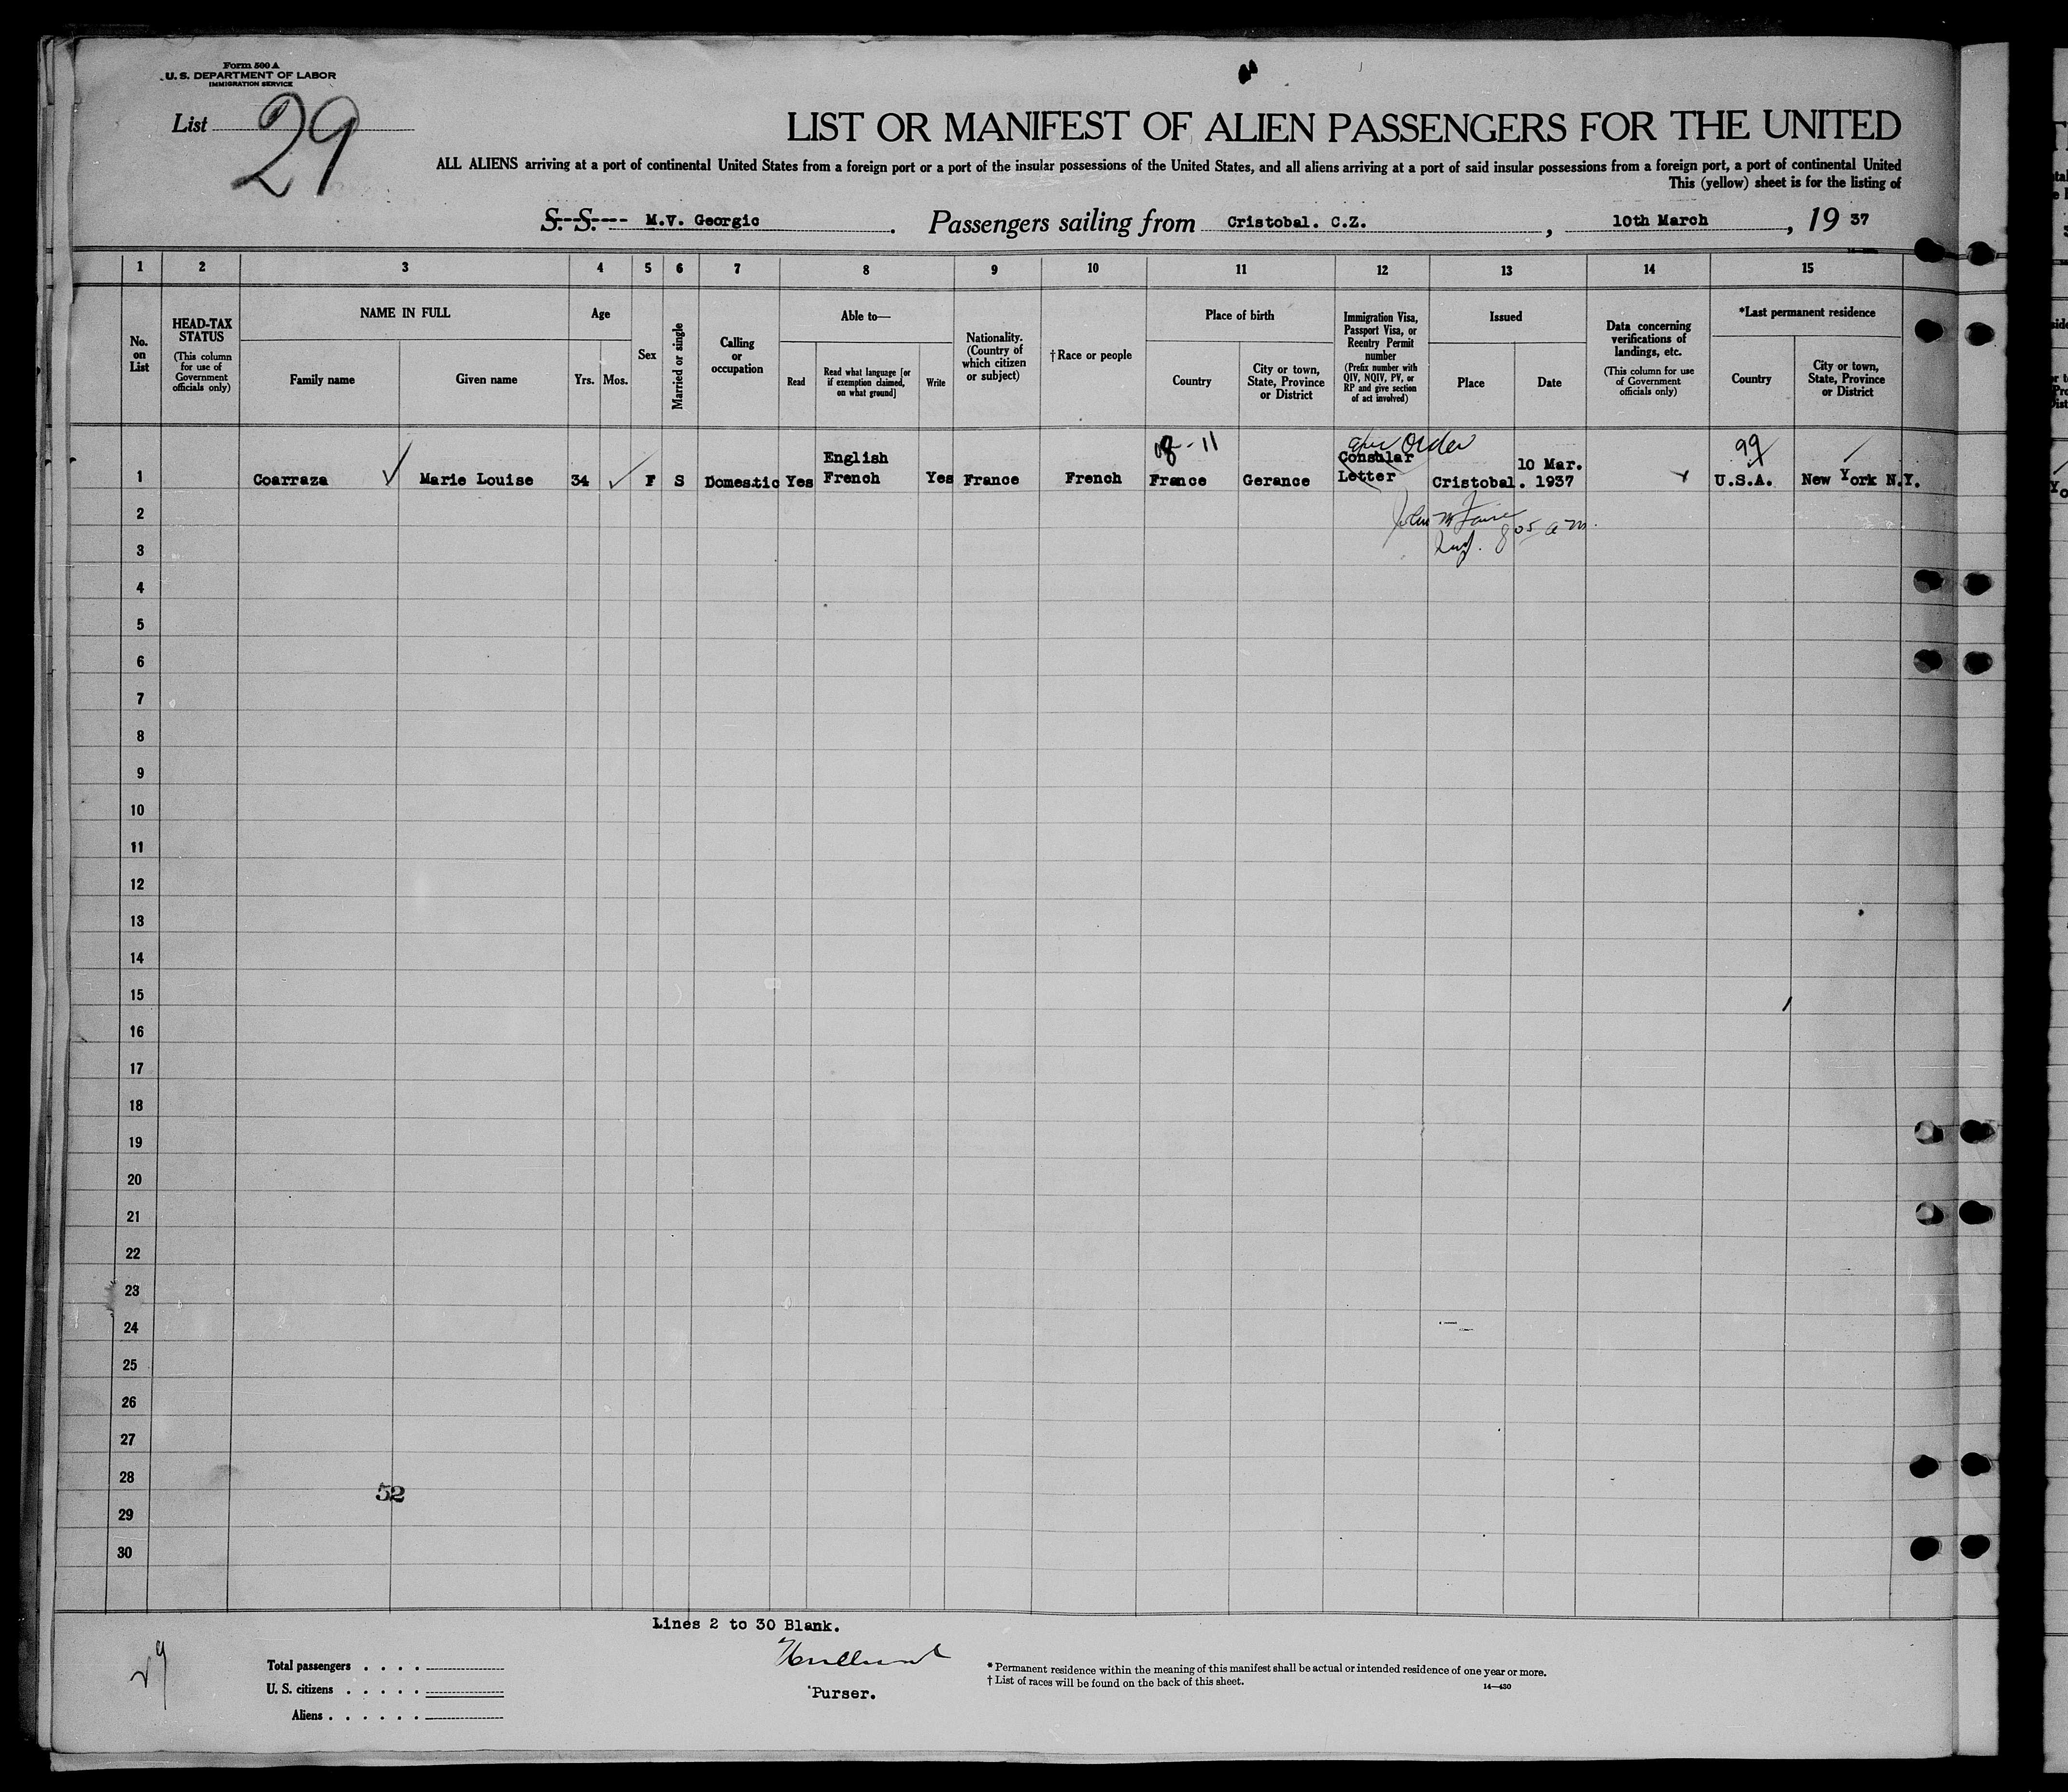 Form 500 A
U. S. DEPARTMENT OF LABOR
IMMIGRATION SERVICE
List 29
LIST OR MANIFEST OF ALIEN PASSENGERS FOR THE UNITED
ALL ALIENS arriving at a port of continental United States from a foreign port or a port of the insular possessions of the United States, and all aliens arriving at a port of said insular possessions from a foreign port, a port of continental United
This (yellow) sheet is for the listing of
S. S. M.V. Georgic. Passengers sailing from Cristobal. C.Z., 10th March, 19 37
1 2 3 4 5 6 7 8 9 10 11 12 13 14 15
No. on List
HEAD-TAX STATUS
(This column for use of Government officials only)
NAME IN FULL
Family name
Given name
Age
Yrs. Mos.
Sex
Married or single
Calling or occupation
Able to—
Read
Read what language [or if exemption claimed, on what ground]
Write
Nationality. (Country of which citizen or subject)
† Race or people
Place of birth
Country
City or town, State, Province or District
Immigration Visa, Passport Visa, or Reentry Permit number
(Prefix number with QIV, NQIV, PV, or RP and give section of act involved)
Issued
Place
Date
Data concerning verifications of landings, etc.
(This column for use of Government officials only)
*Last permanent residence
Country
City or town, State, Province or District
Order
99
1 Coarraza Marie Louise 34 F S Domestic Yes English French Yes France French France Gerance Consular Letter Cristobal. 10 Mar. 1937 U.S.A. New York N.Y.
2
3
4
5
6
7
8
9
10
11
12
13
14
15
16
17
18
19
20
21
22
23
24
25
26
27
28
52
29
30
Lines 2 to 30 Blank.
29
Total passengers
U. S. citizens
Aliens
Purser.
* Permanent residence within the meaning of this manifest shall be actual or intended residence of one year or more.
† List of races will be found on the back of this sheet.
14—430